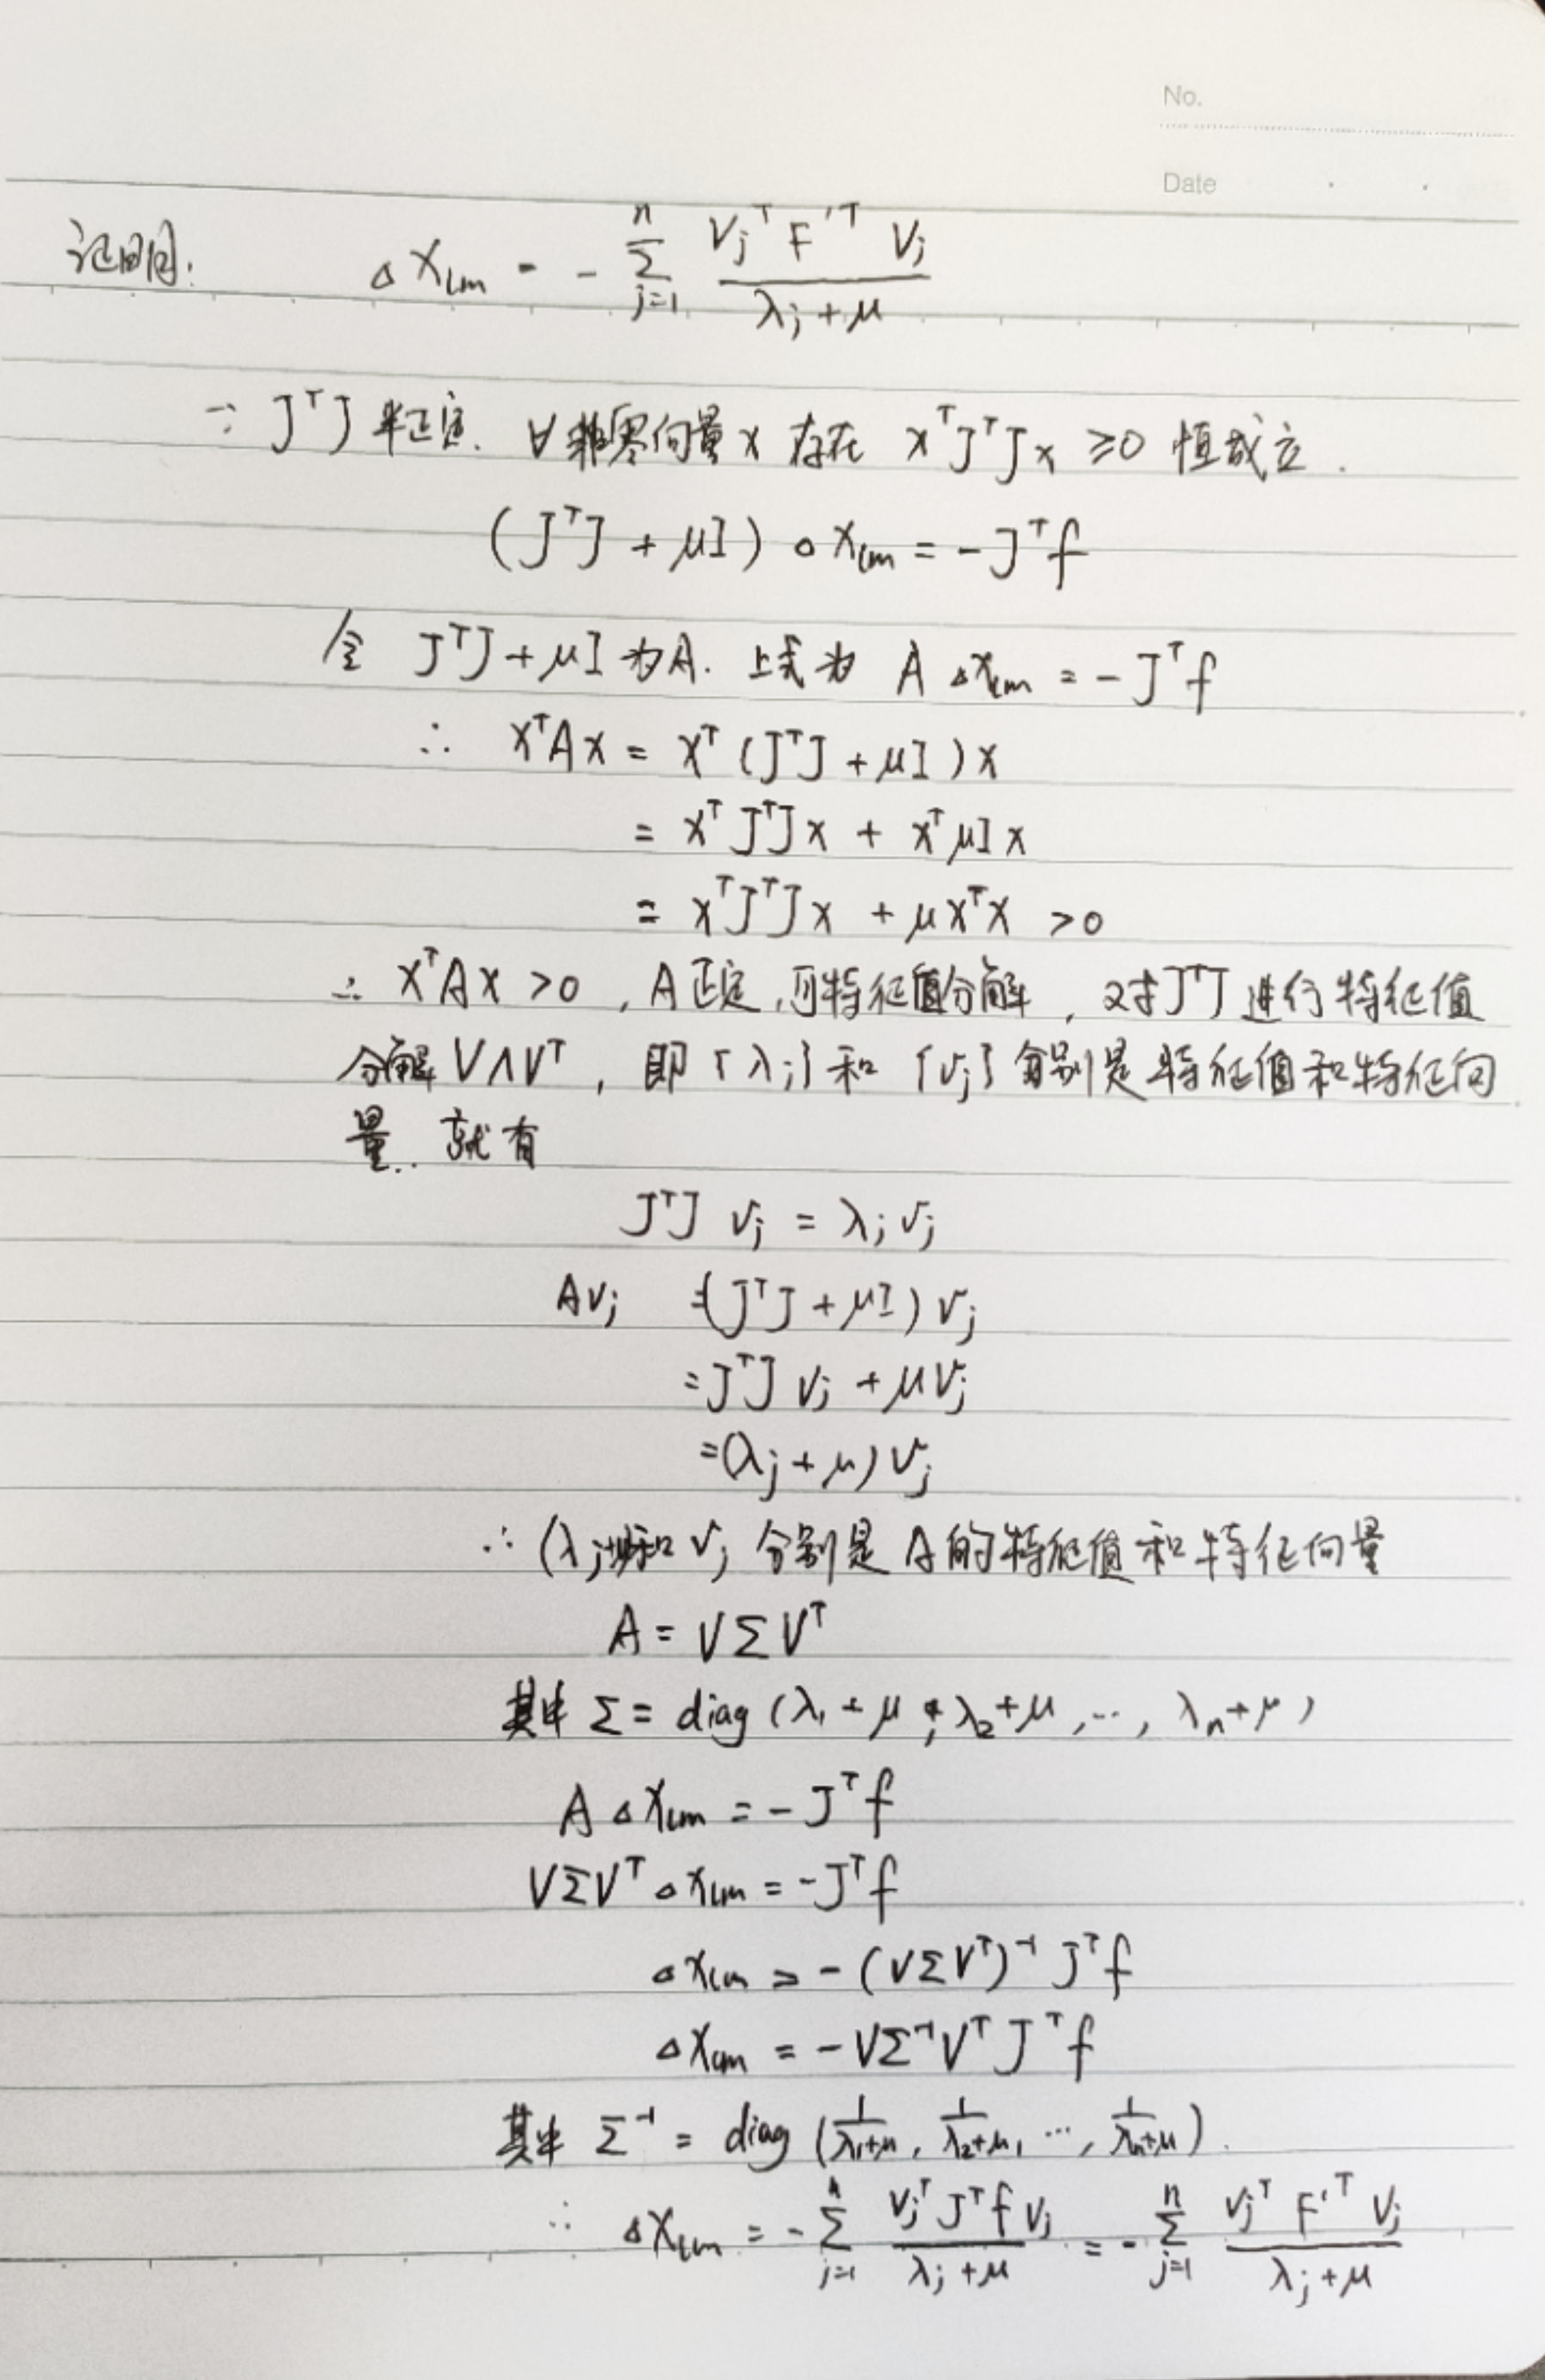 No.
Date
证明: △x_lm = - Σ_{j=1}^{n} (V_j^T F'^T V_j)/(λ_j + μ)
∵ J^T J 半正定. ∀ 非零向量 x 存在 x^T J^T J x ≥ 0 恒成立.
(J^T J + μI) △x_lm = -J^T f
令 J^T J + μI 为 A. 上式为 A △x_lm = -J^T f
∴ x^T A x = x^T (J^T J + μI) x
= x^T J^T J x + x^T μI x
= x^T J^T J x + μ x^T x > 0
∴ x^T A x > 0 , A 正定, 可特征值分解, 对 J^T J 进行特征值
分解 V Λ V^T , 即 {λ_j} 和 {v_j} 分别是特征值和特征向
量. 就有
J^T J v_j = λ_j v_j
A v_j = (J^T J + μI) v_j
= J^T J v_j + μ v_j
= (λ_j + μ) v_j
∴ (λ_j+μ)和 v_j 分别是 A 的特征值和特征向量
A = V Σ V^T
其中 Σ = diag (λ_1 + μ , λ_2 + μ , ..., λ_n + μ)
A △x_lm = -J^T f
V Σ V^T △x_lm = -J^T f
△x_lm = -(V Σ V^T)^{-1} J^T f
△x_lm = -V Σ^{-1} V^T J^T f
其中 Σ^{-1} = diag (1/(λ_1+μ), 1/(λ_2+μ), ..., 1/(λ_n+μ)).
∴ △x_lm = - Σ_{j=1}^{n} (V_j^T J^T f V_j)/(λ_j + μ) = - Σ_{j=1}^{n} (V_j^T F'^T V_j)/(λ_j + μ)